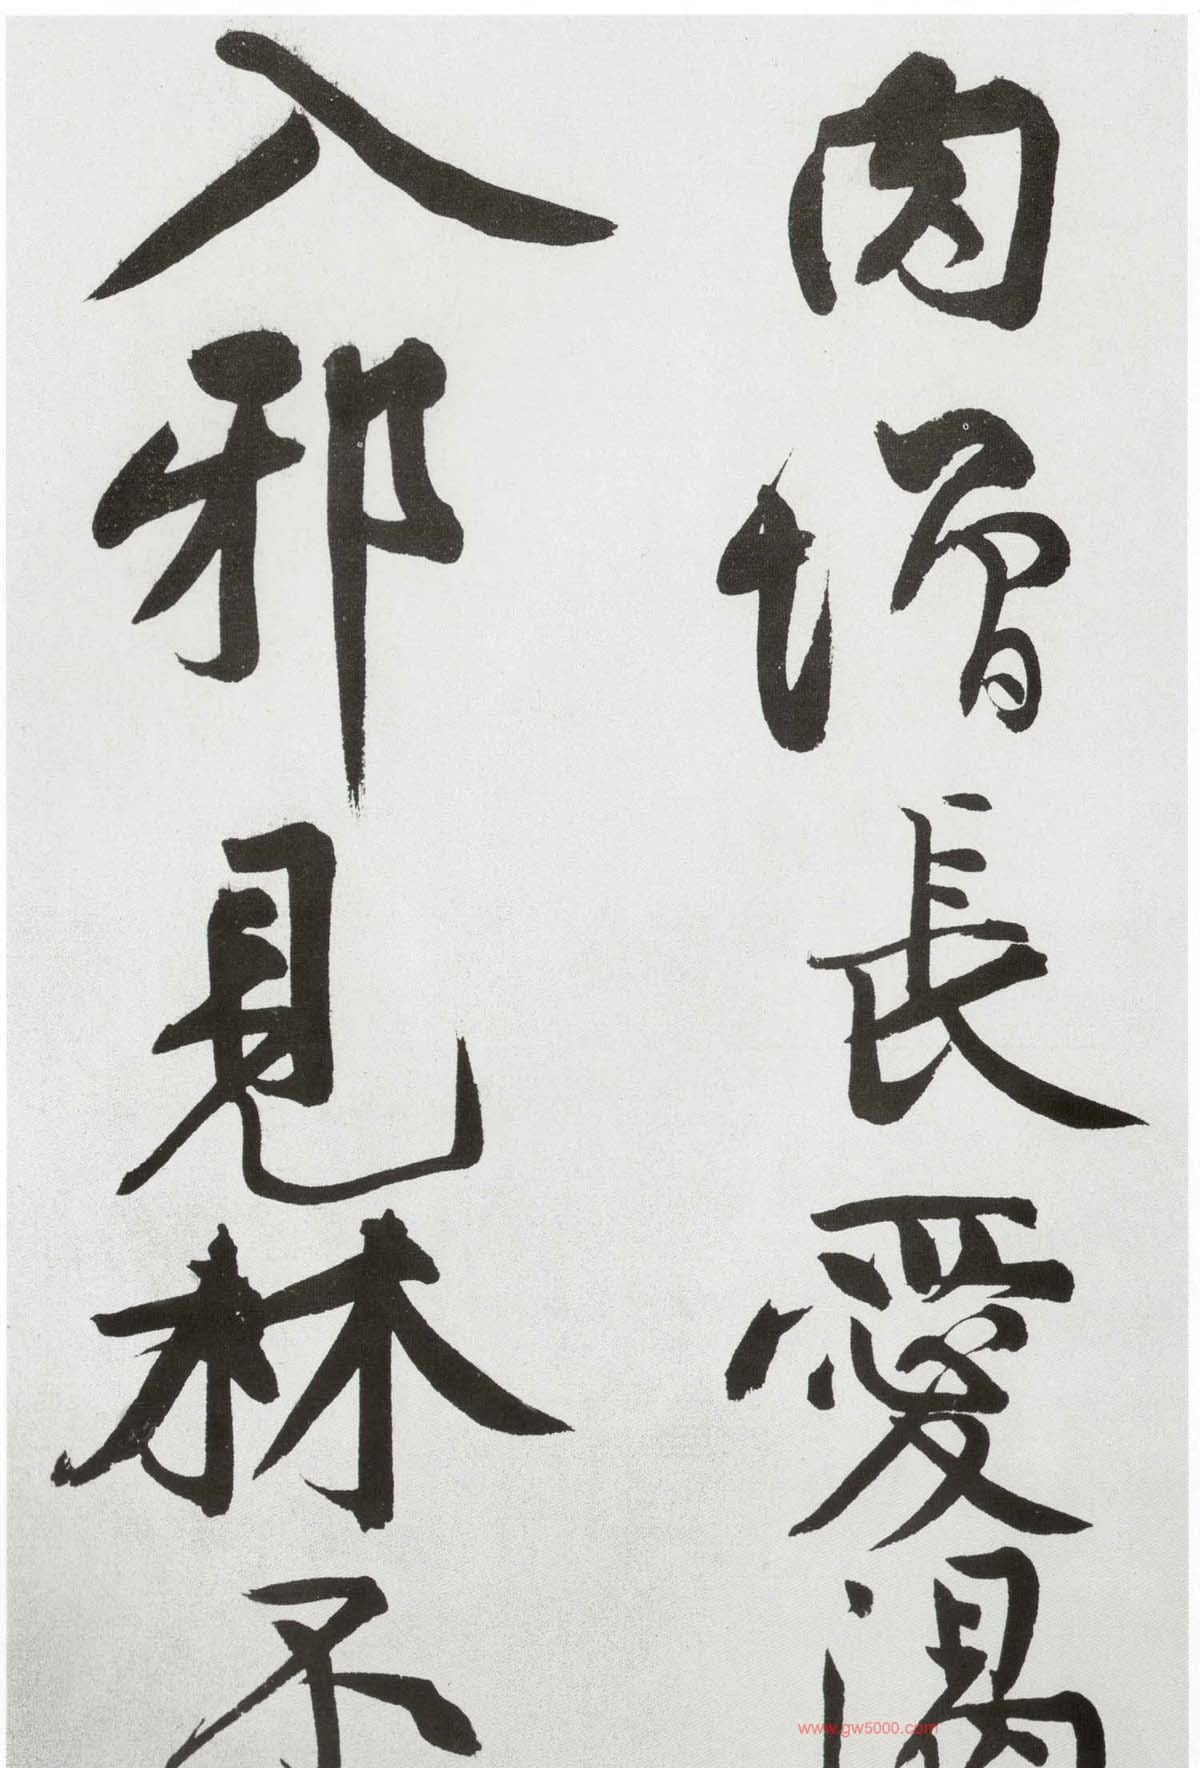 肉增長愛渴
入邪見林不
www.gw5000.com